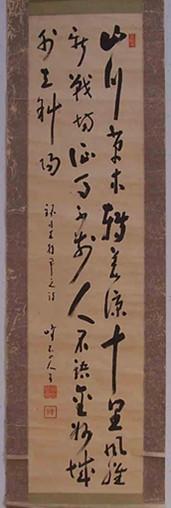 山川草木轉荒涼十里風腥
新戰場征馬不前人不語金州城
外立斜陽
将軍之詩
山人